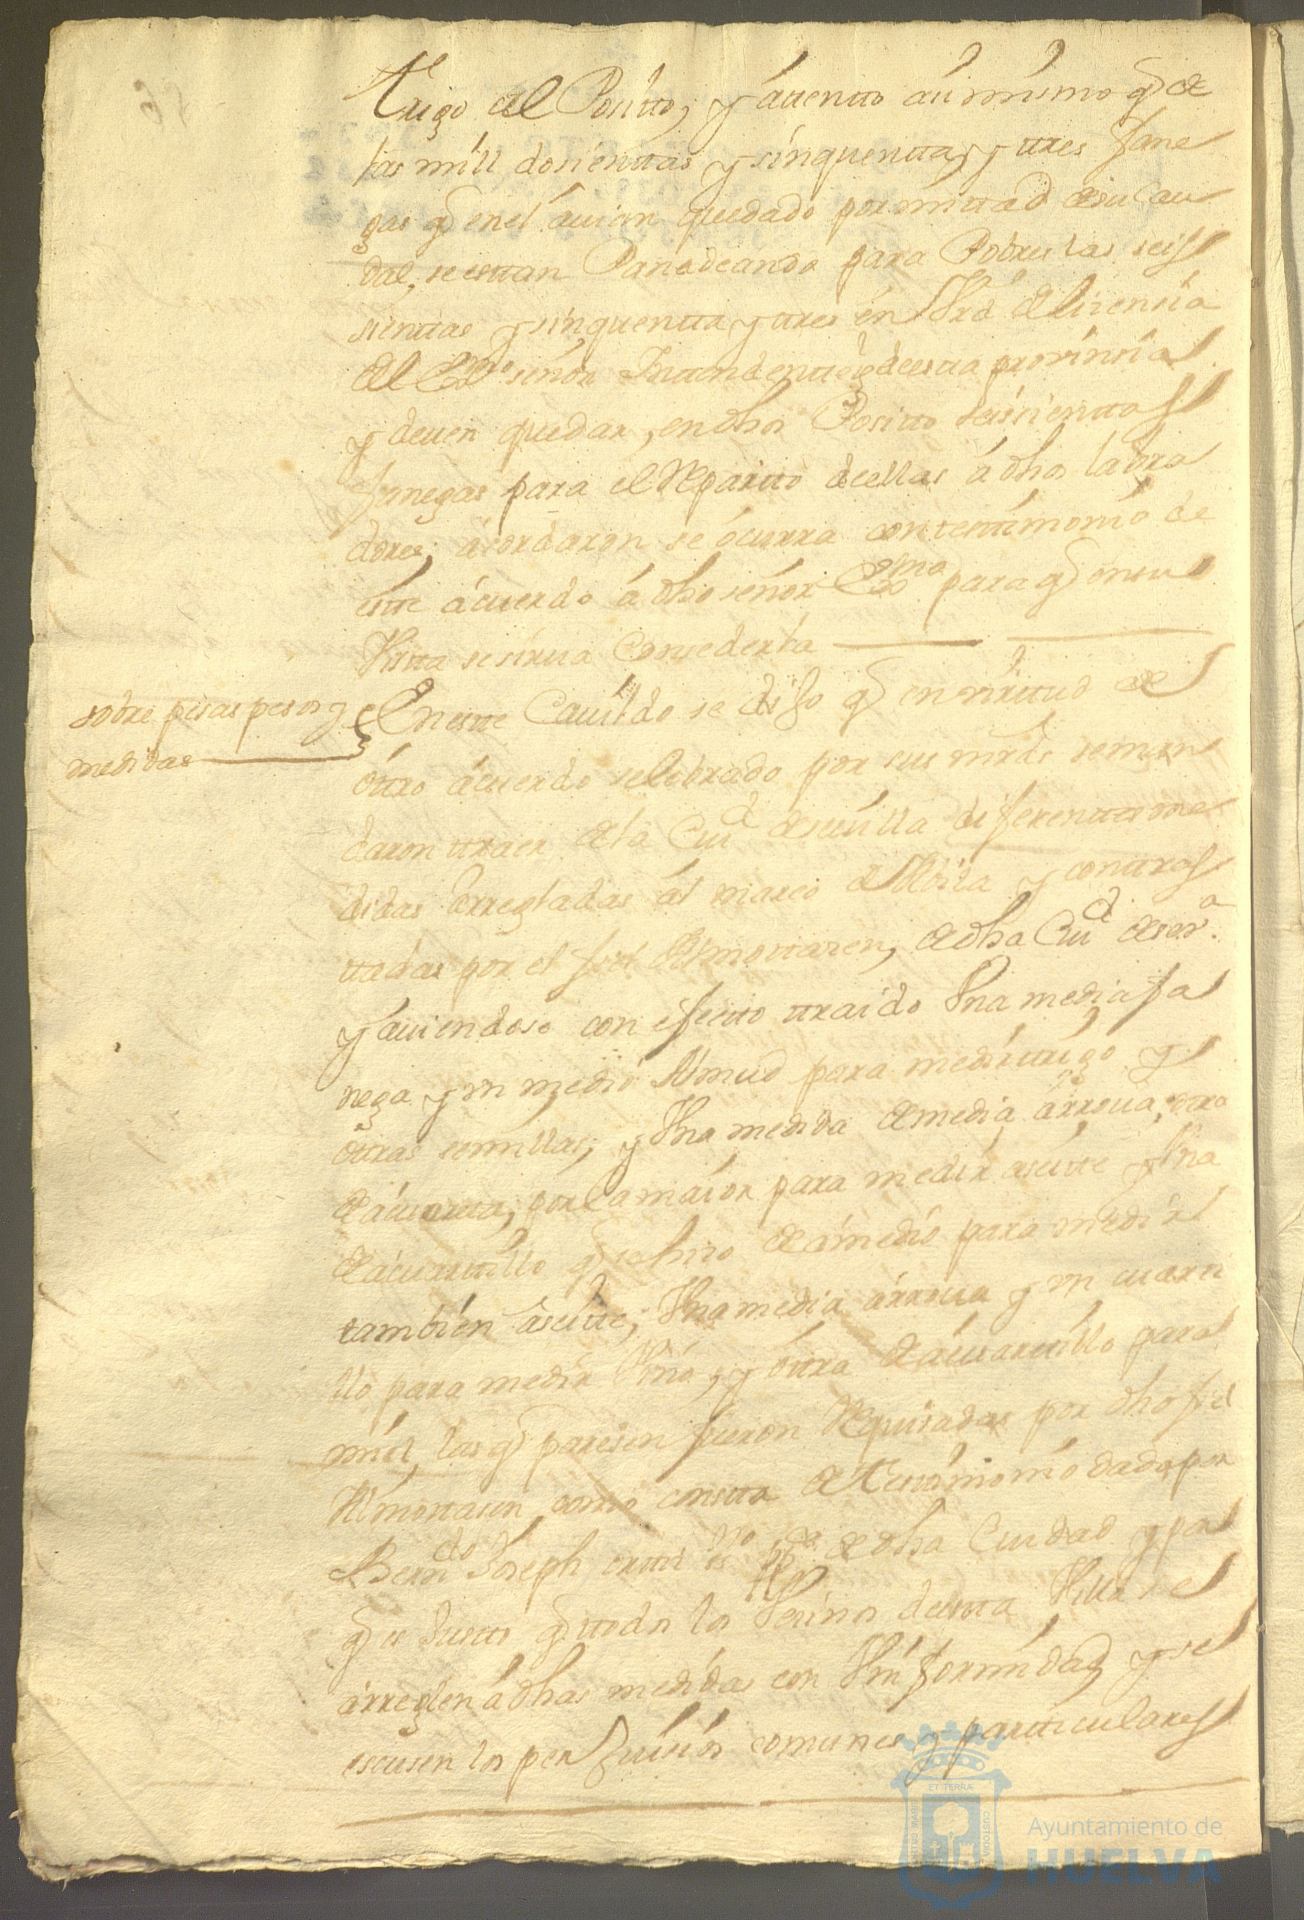 trigo del Positto, y áttentto aú mismo q̃ de
las mill dosienttas y sinquentta, y ttres fane
gas q̃ en el auian quedado por mittad de su Cau
dal, se esttan Panadeando para Pobres las seis
sienttas y sinquentta y ttres en Vrd de lisensia
del Exmo señor Inttendentte de estta provinsia
y deuen quedar, en dho Positto seissienttas
fanegas para el Repartto de ellas á dhos labra
dores; ácordaron se ócurra con testtimonio de
estte ácuerdo á dho señor Exmo para q̃ en su
Vistta se sirua Consederla
sobre pisas pesos y
medidas
En estte Cauildo se dijo q̃ en virttud de
ottro ácuerdo selebrado por sus mrds se man
daron ttraer de la Ciud de seuilla diferenttes me
didas árregladas ál marco de Abila y conttras
ttadas por el fiel Almottazen, de dha Ciud de seva
y áuiendose con efectto ttraido Vna media fa
nega y vn medio Almud para medir ttrigo y
ottras semillas; y Vna medida de media árroua, ottra
de áquartta, por la maior para medir aseitte y Vna
de áquarttillo q̃ se hizo de ámedio para medir
tambien áseitte; Vna media árroua y vn cuartti
llo para medir Vino, y ottra de áquarttillo para
miel, las q̃ paresen fueron Requisadas por dho fiel
Almottasen como constta de testtimonio dado por
Berndo Joseph orttiz esno ppco de dha Ciudad y pa
q̃ es Justto q̃ ttodos los Vesinos de estta Villa se
árreglen á dhas medidas con Vniformidad y se
escusen los perjuisios comunes y partticulares
ET TERRÆ
CUSTODIA
Ayuntamiento de
HUELVA